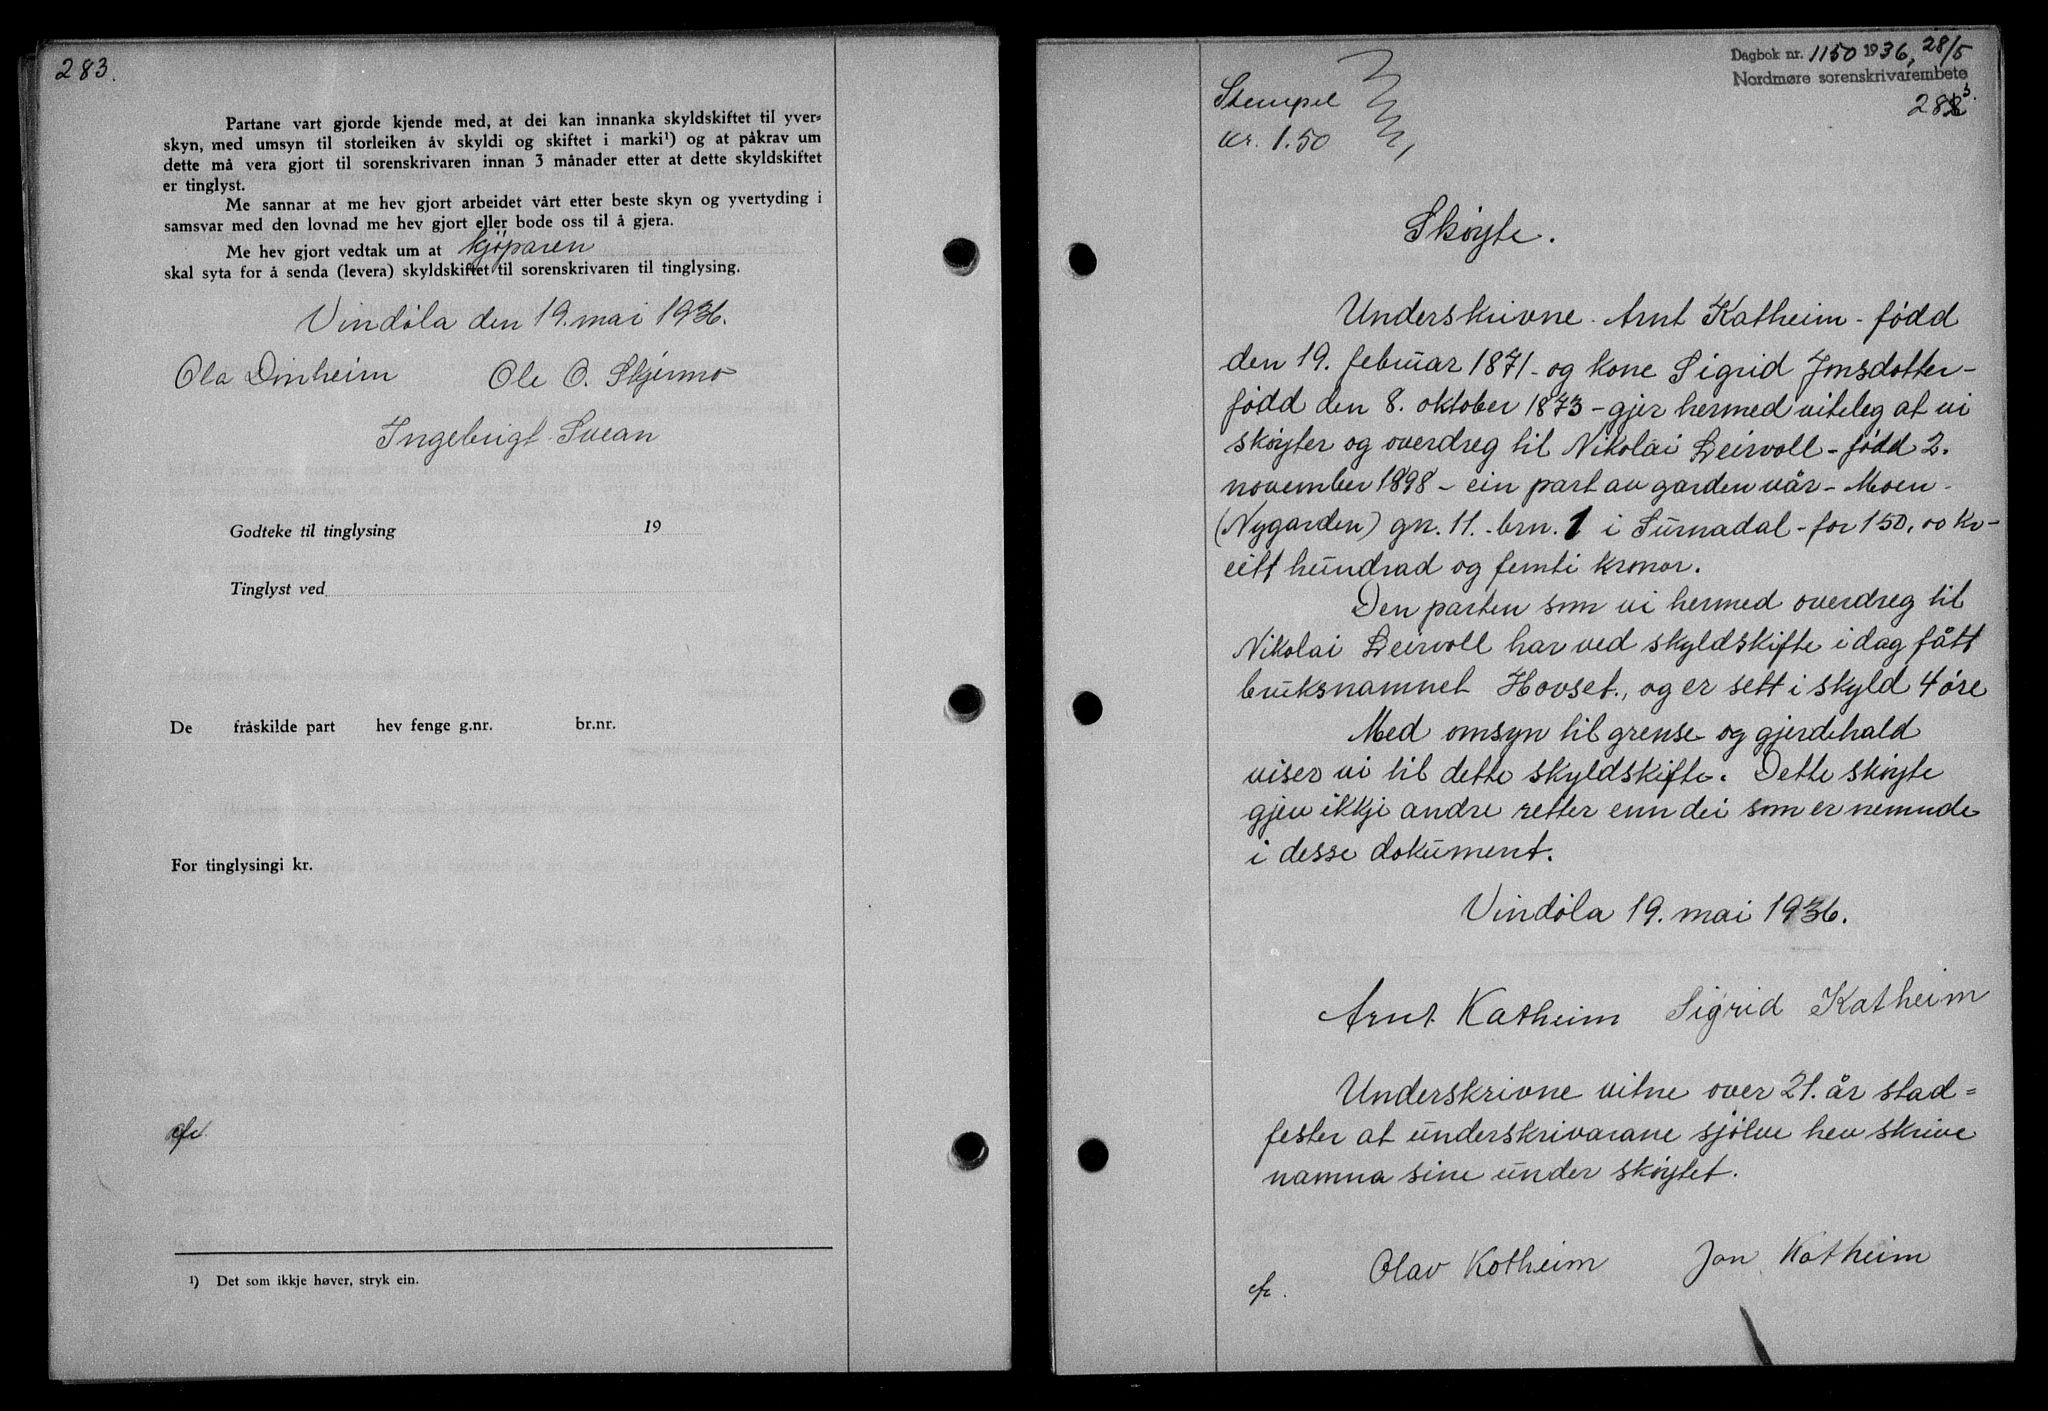 283.
Partane vart gjorde kjende med, at dei kan innanka skyldskiftet til yver-
skyn, med umsyn til storleiken åv skyldi og skiftet i marki¹) og at påkrav um
dette må vera gjort til sorenskrivaren innan 3 månader etter at dette skyldskiftet
er tinglyst.
Me sannar at me hev gjort arbeidet vårt etter beste skyn og yvertyding i
samsvar med den lovnad me hev gjort eller bode oss til å gjera.
Me hev gjort vedtak um at kjøparen
skal syta for å senda (levera) skyldskiftet til sorenskrivaren til tinglysing.
Vindøla den 19. mai 1936.
Ola Dønheim Ole O. Skjermo
Ingebrigt Svean
Godteke til tinglysing 19
Tinglyst ved
De fråskilde part hev fenge g.nr. br.nr.
For tinglysingi kr.
efr.
¹) Det som ikkje høver, stryk ein.
Dagbok nr. 1150 1936, 28/5
Nordmøre sorenskrivarembete
283.
Stempel
kr. 1.50
Skøyte.
Underskrivne - Arnt Katheim - fødd
den 19. februar 1871 - og kone Sigrid Jonsdotter -
fødd den 8. oktober 1873 - gjer hermed viteleg at vi
skøyter og overdreg til Nikolai Leirvoll - fødd 2.
november 1898 - ein part av garden vår - Moen -
(Nygarden) gn. 11. - brn. 1 i Surnadal - for 150,00 kr -
eitt hundrad og femti kronor.
Den parten som vi hermed overdreg til
Nikolai Leirvoll har ved skyldskifte i dag fått
bruksnamnet Hovset., og er sett i skyld 4 øre
Med omsyn til grense og gjerdehald
viser vi til dette skyldskifte. Dette skøyte
gjev ikkje andre retter enn dei som er nemnde
i desse dokument.
Vindøla 19. mai 1936.
Arnt Katheim Sigrid Katheim
Underskrivne vitne over 21. år stad=
fester at underskrivarane sjølve hev skrive
namna sine under skøytet.
Olav Kotheim Jon Kotheim
efr.